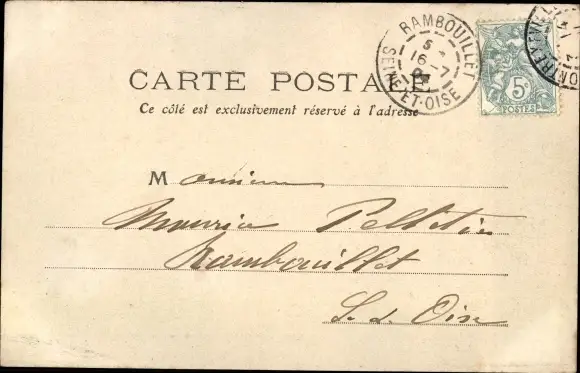 CARTE POSTALE
Ce côté est exclusivement réservé à l'adresse
RAMBOUILLET
5
16 -7
SEINE-ET-OISE
5c
POSTES
Monsieur
Maurice Pelletier
Rambouillet
S. d. Oise